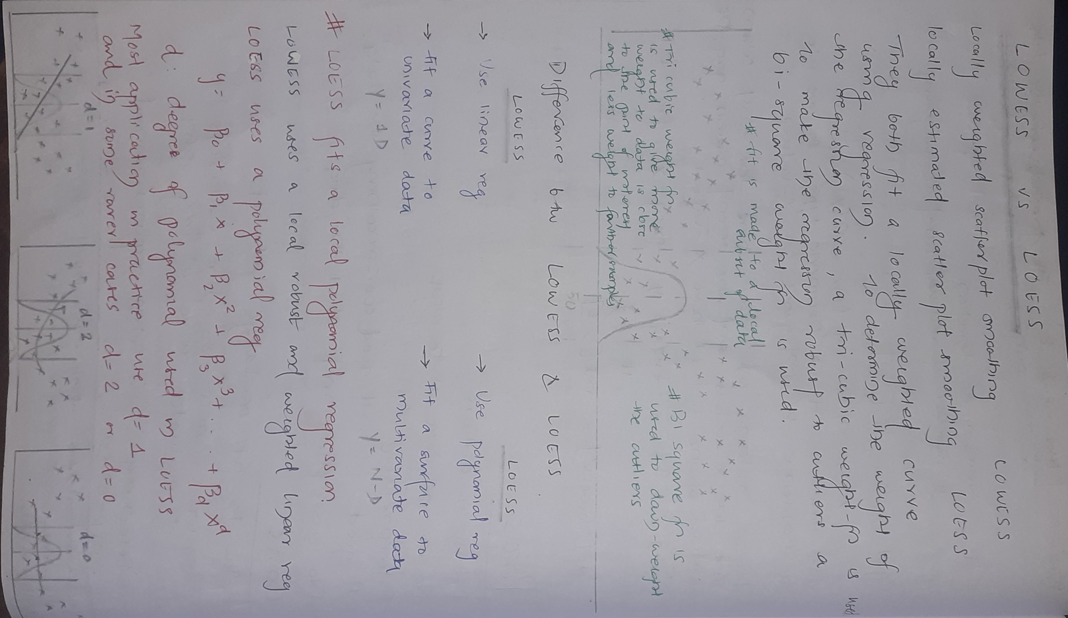 LOWESS vs LOESS
Locally weighted scatterplot smoothing LOWESS
locally estimated scatter plot smoothing LOESS
They both fit a locally weighted curve
using regression. To determine the weight of
the regression curve, a tri-cubic weight fn is used
To make the regression robust to outliers a
bi-square weight fn is used.
# fit is made to a local
subset of data
# Tri cubic weight fn
is used to give more
weight to data is close
to the point of interest
and less weight to farther samples
# Bi square fn is
used to down-weight
the outliers
Difference btw LOWESS & LOESS
LOWESS LOESS
→ Use linear reg → Use polynomial reg
→ Fit a curve to → Fit a surface to
univariate data multivariate data
Y = 1D Y = N-D
# LOESS fits a local polynomial regression
LOWESS uses a local robust and weighted linear reg
LOESS uses a polynomial reg
y = β0 + β1 x + β2 x² + β3 x³ + ... + βd x^d
d: degree of polynomial used in LOESS
Most application in practice use d=1
and in some rarer cases d=2 or d=0
d=1 d=2 d=0